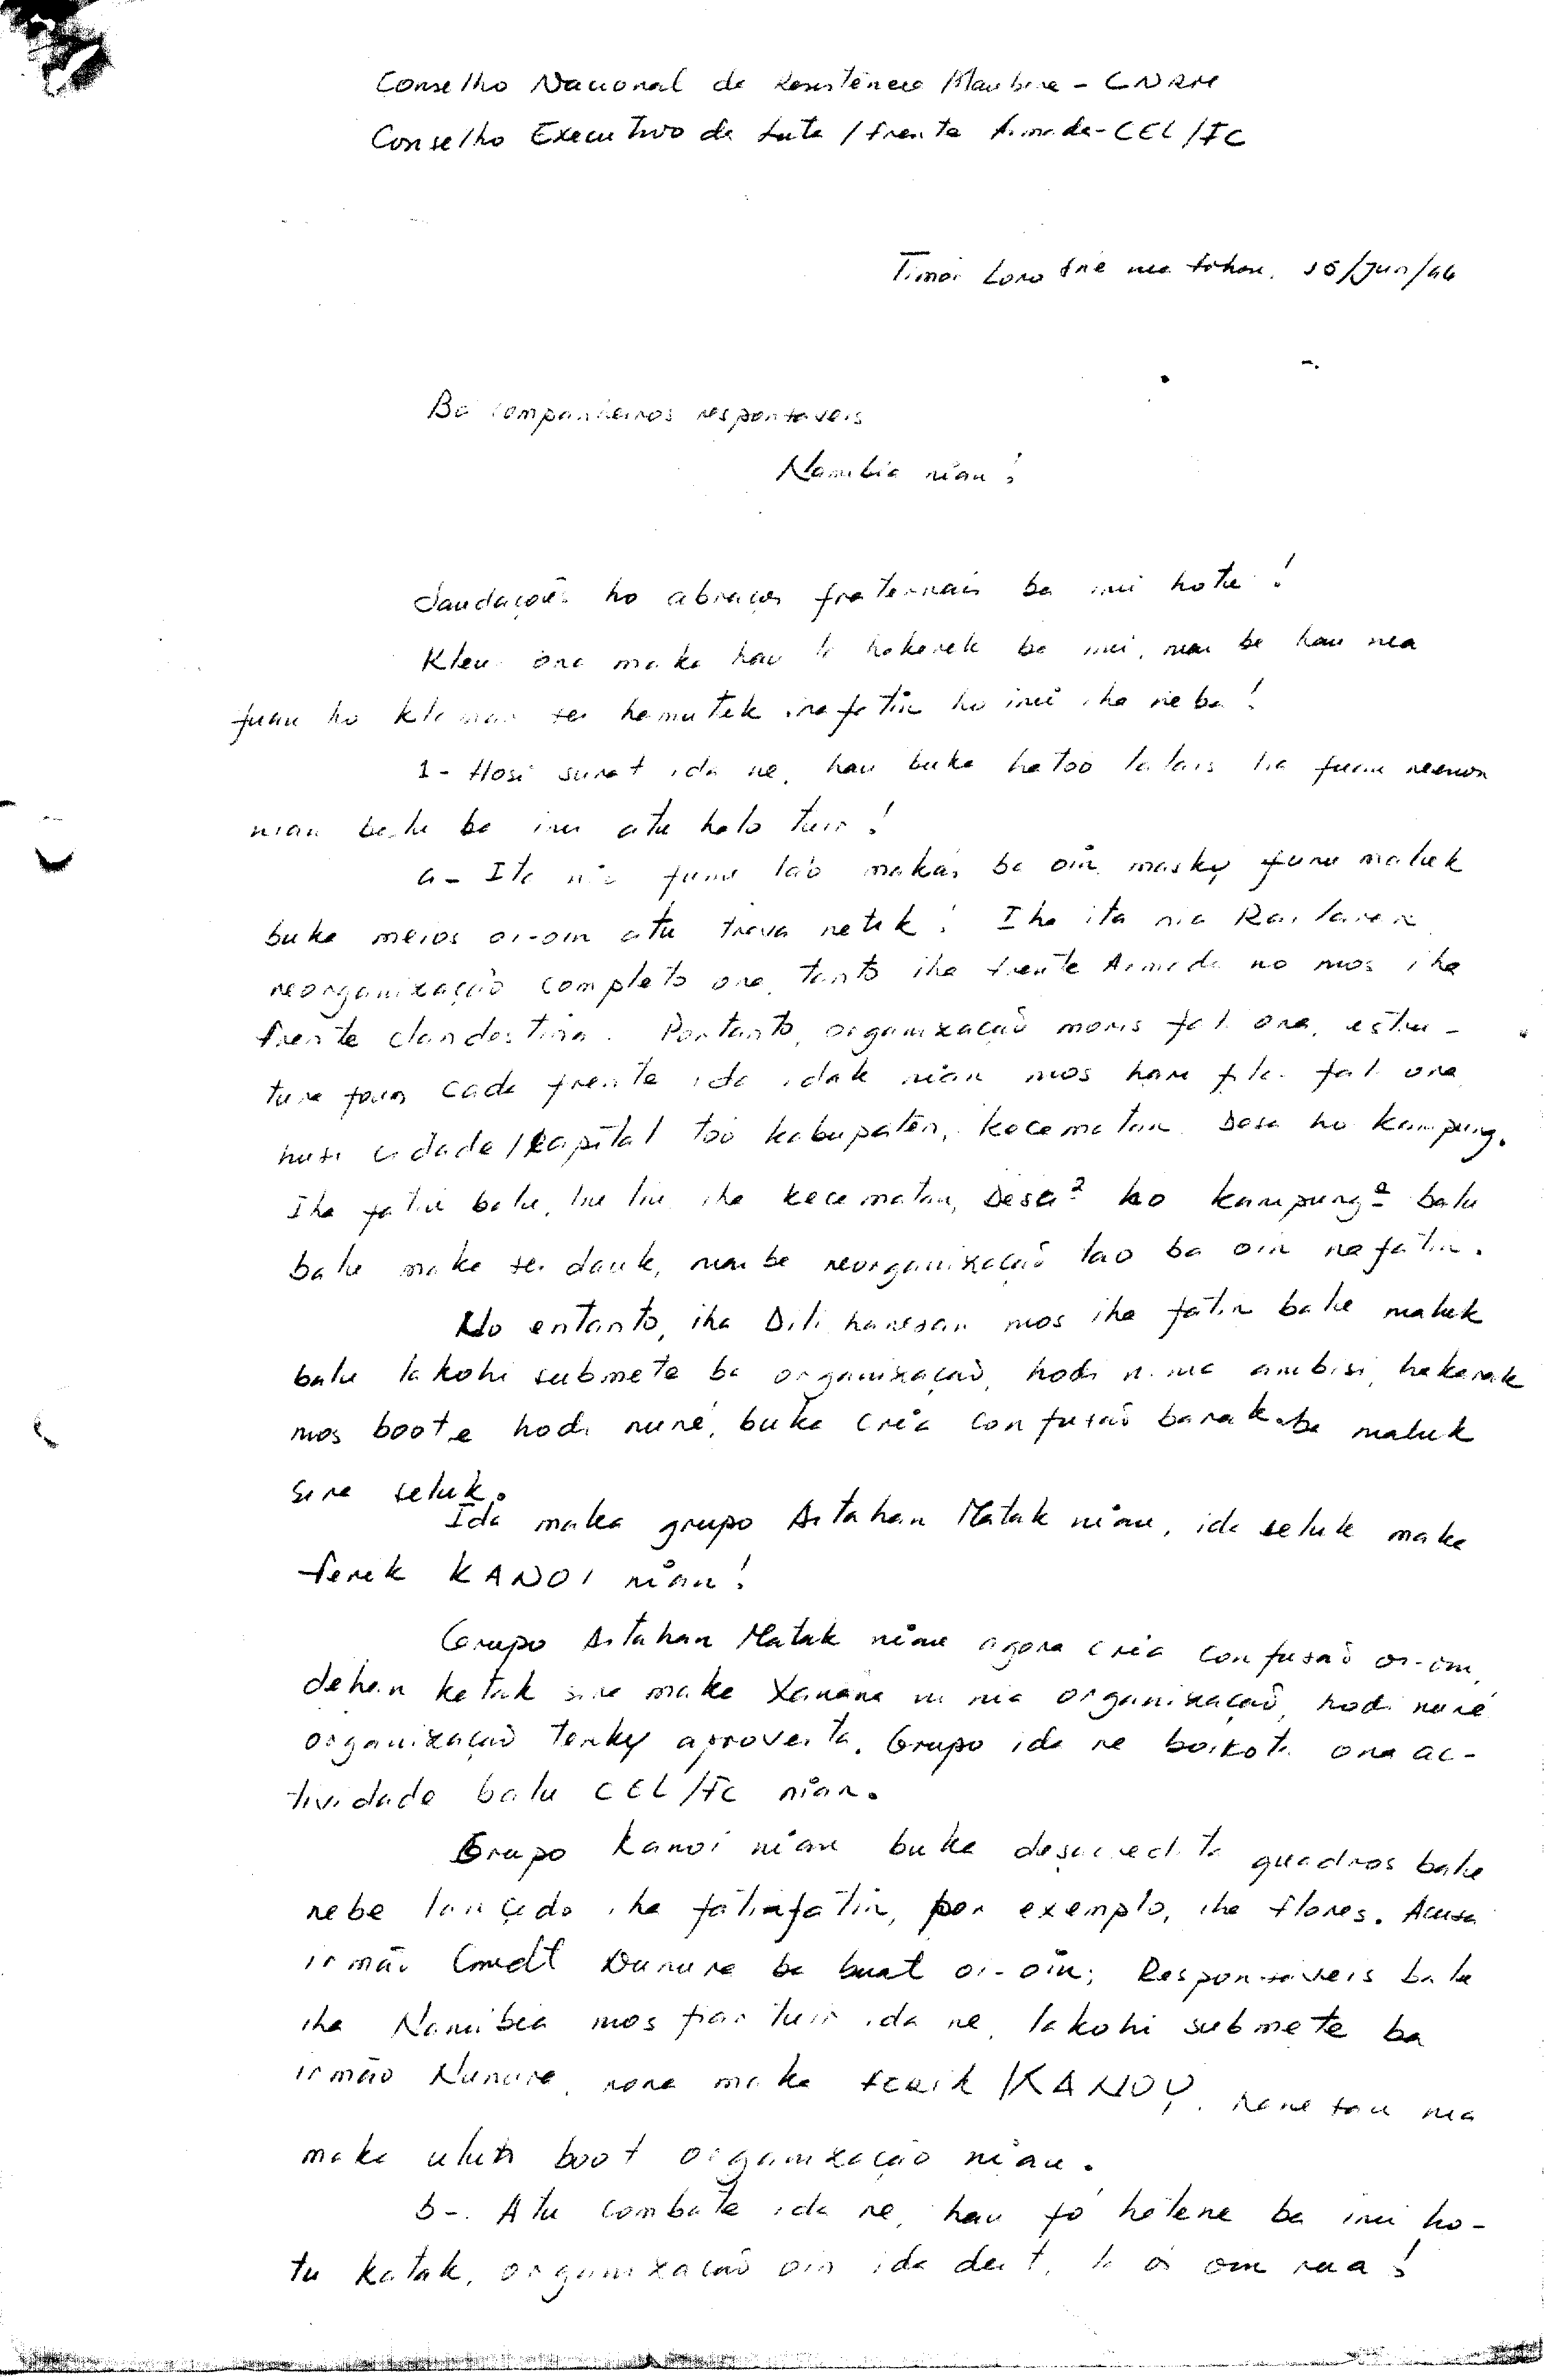 Conselho Nacional da Resistência Maubere - CNRM
Conselho Executivo da Luta / Frente Armada - CEL/FC
Timor Loro
Ba companheiros responsaveis
Namibia nian!
Saudações ho abraços fraternais ba imi hotu!
Kleur ona maka hau la hakerek ba imi, mai be hau nia
fuan ho klamar sei hamutuk nafatin ho imi iha neba!
1- Hosi surat ida ne, hau buka hatoo lalais lia fuan
nian balu ba imi atu halo tuir!
a- Ita nia funu lao makas ba oin, masky funu maluk
buka meios oi-oin atu trava netik! Iha ita nia Rai laran
reorganização completo ona, tanto iha Frente Armada no mos iha
Frente clandestina. Portanto, organização moris fali ona, estru-
tura foun cada frente ida idak nian mos hari fila fali ona
husi cidade/kapital too kabupatén, kecematan Desa ho kampung.
Iha fatin balu, liu liu iha kecematan, Desa² ho kampung² balu
balu maka sei dauk, mai be reorganização lao ba oin nafatin.
No entanto, iha Dili hanesan mos iha fatin balu maluk
balu lakohi submete ba organização, hodi nia ambisi, hakarak
mos boot hodi nuné, buka cria confusão barak ba maluk
sira seluk.
Ida maka grupo Aitahan Matak nian, ida seluk maka
ferik KANOI nian!
Grupo Aitahan Matak nian agora cria confusão oi-oin,
dehan katak sira maka Xanana nia organização, hodi nuné
organização tenky aproveita. Grupo ida ne boikota ona ac-
tividade balu CEL/FC nian.
Grupo Kanoi nian buka desacredita quadros balu
nebe lançado iha fatinfatin, por exemplo, iha Flores. Acusa
irmão Cmdt Dunure ba buat oi-oin; Responsaveis balu
iha Namibia mos fiar tuir ida ne, lakohi submete ba
irmão Nunure, rona maka ferik KANOY, nia
maka ulun boot organização nian.
b-. Atu combate ida ne, hau fó hatene ba imi ho-
tu katak, organização oin ida deit, la os oin rua!